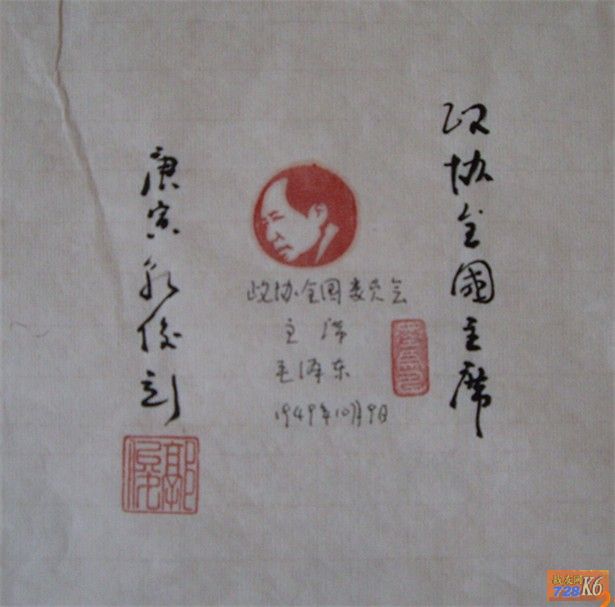 政协全國主席
政协全国委员会
主席
毛泽东
1949年10月9日
庚寅 俊刻
728 K6